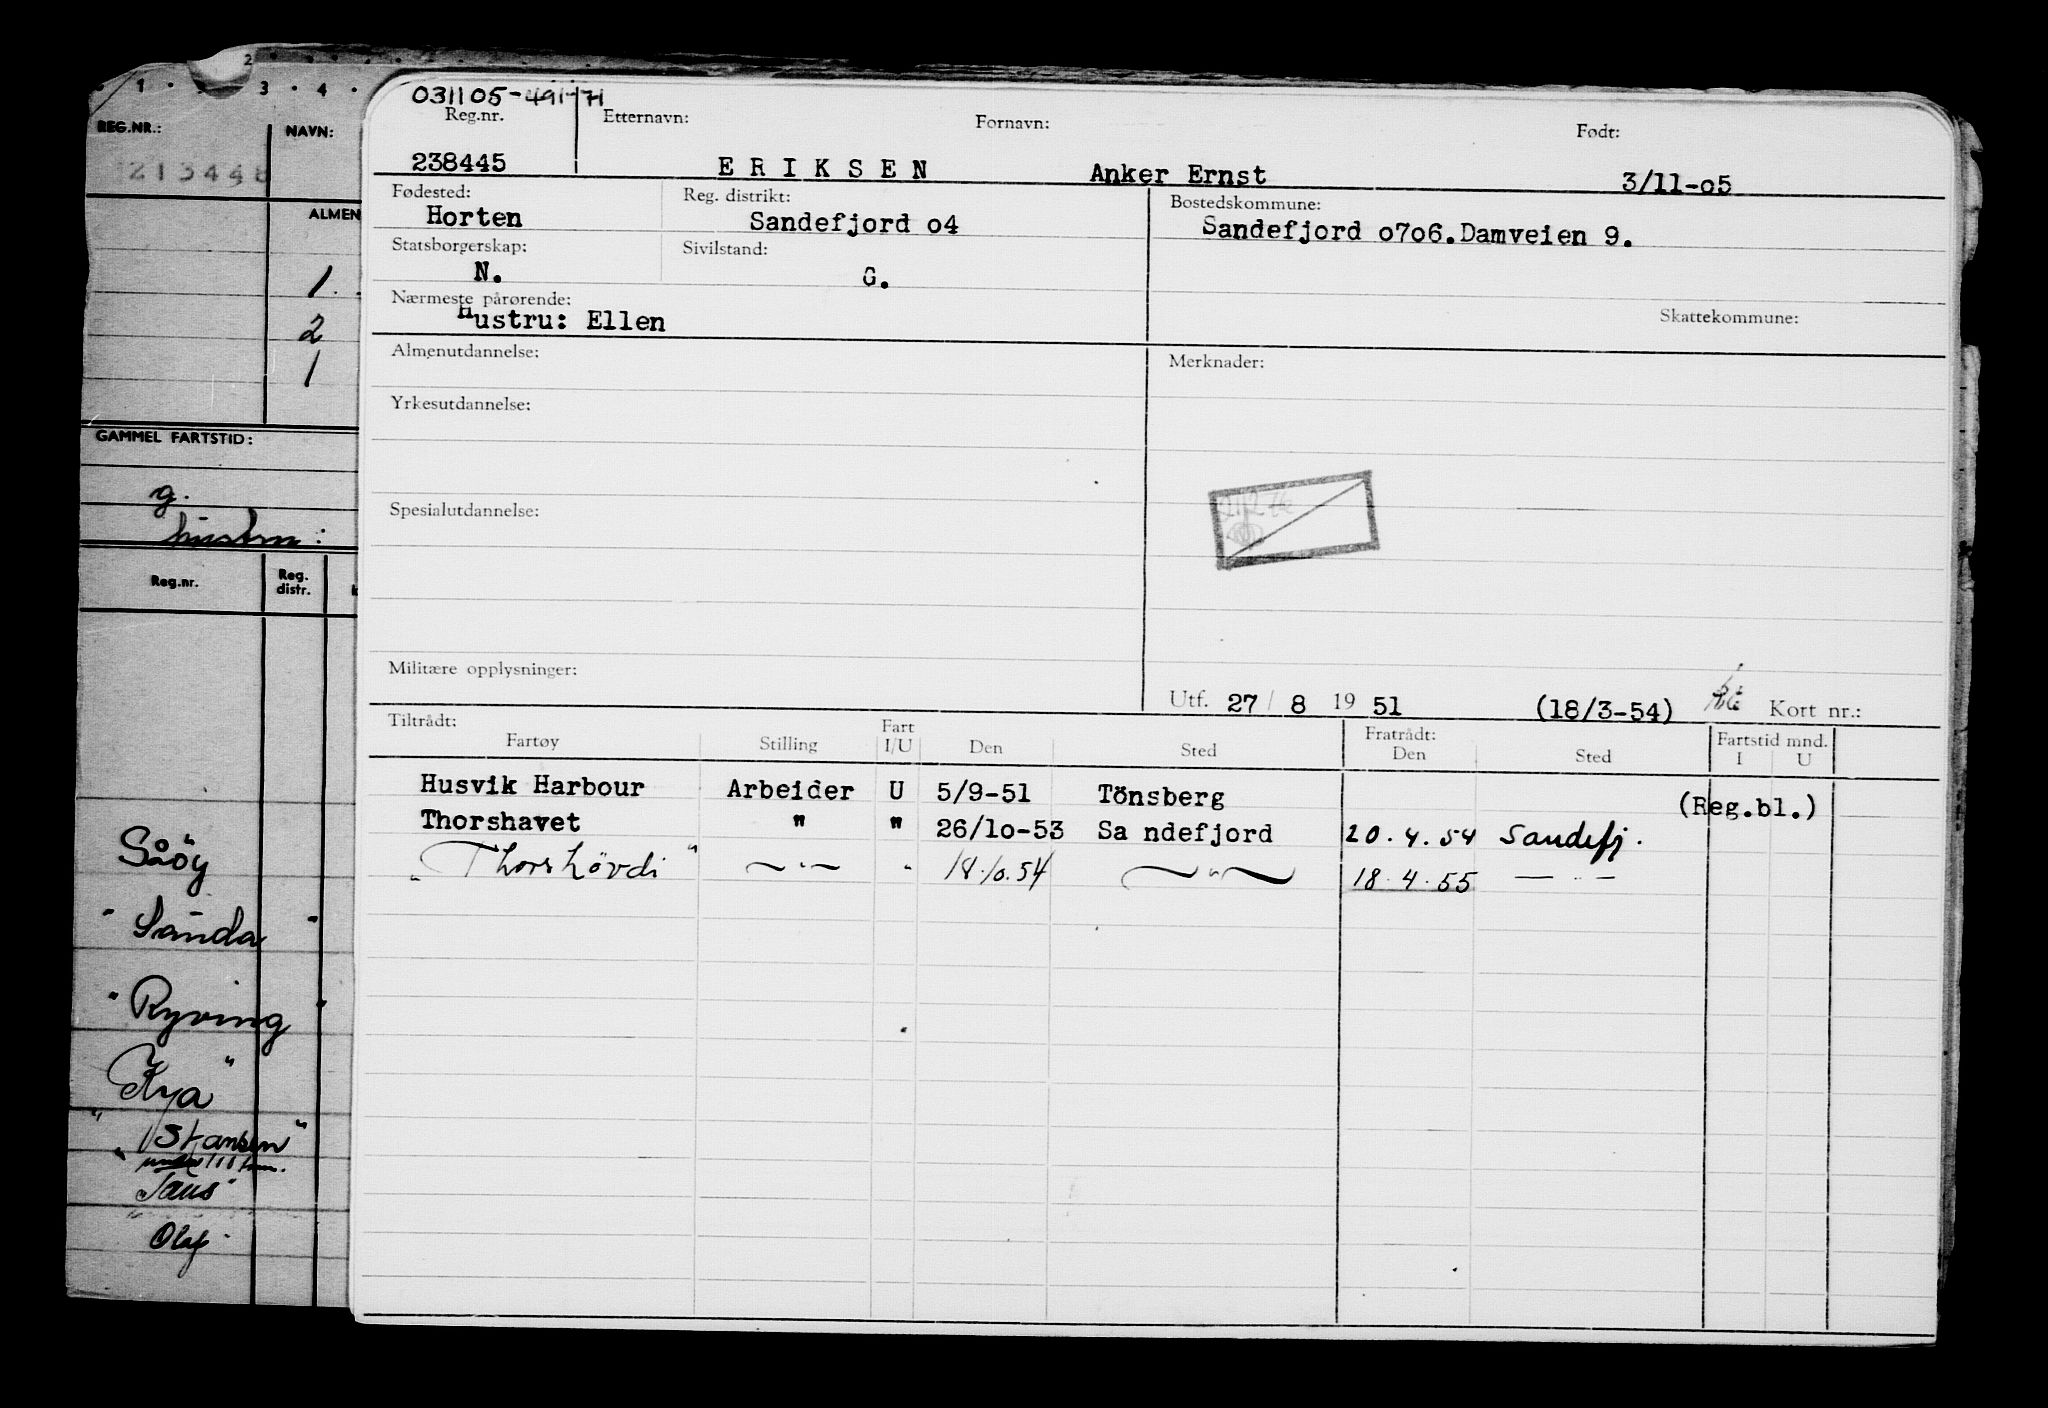 2
1 3 4
REG.NR.: NAVN:
213448
ALMEN
1.
2
1
GAMMEL FARTSTID:
g.
hustru:
Reg.nr. Reg. distr.
Såöy
"Sanda"
"Ryving"
"Kya"
"Stansen"
"Taus"
Olaf
031105-49171
Reg.nr. Etternavn: Fornavn: Født:
238445 E R I K S E N Anker Ernst 3/11-o5
Fødested: Reg. distrikt: Bostedskommune:
Horten Sandefjord o4 Sandefjord o7o6.Damveien 9.
Statsborgerskap: Sivilstand:
N. G.
Nærmeste pårørende: Skattekommune:
Hustru: Ellen
Almenutdannelse: Merknader:
Yrkesutdannelse:
Spesialutdannelse:
Militære opplysninger:
Utf. 27 / 8 19 51 (18/3-54) Kort nr.:
Tiltrådt: Fart Fratrådt: Fartstid mnd.
Fartøy Stilling I/U Den Sted Den Sted I U
Husvik Harbour Arbeider U 5/9-51 Tönsberg (Reg.bl.)
Thorshavet " " 26/1o-53 Sa ndefjord 20.4.54 Sandefj.
"Thorshövdi" —"— " 18.10.54 —"— 18.4.55 —"—